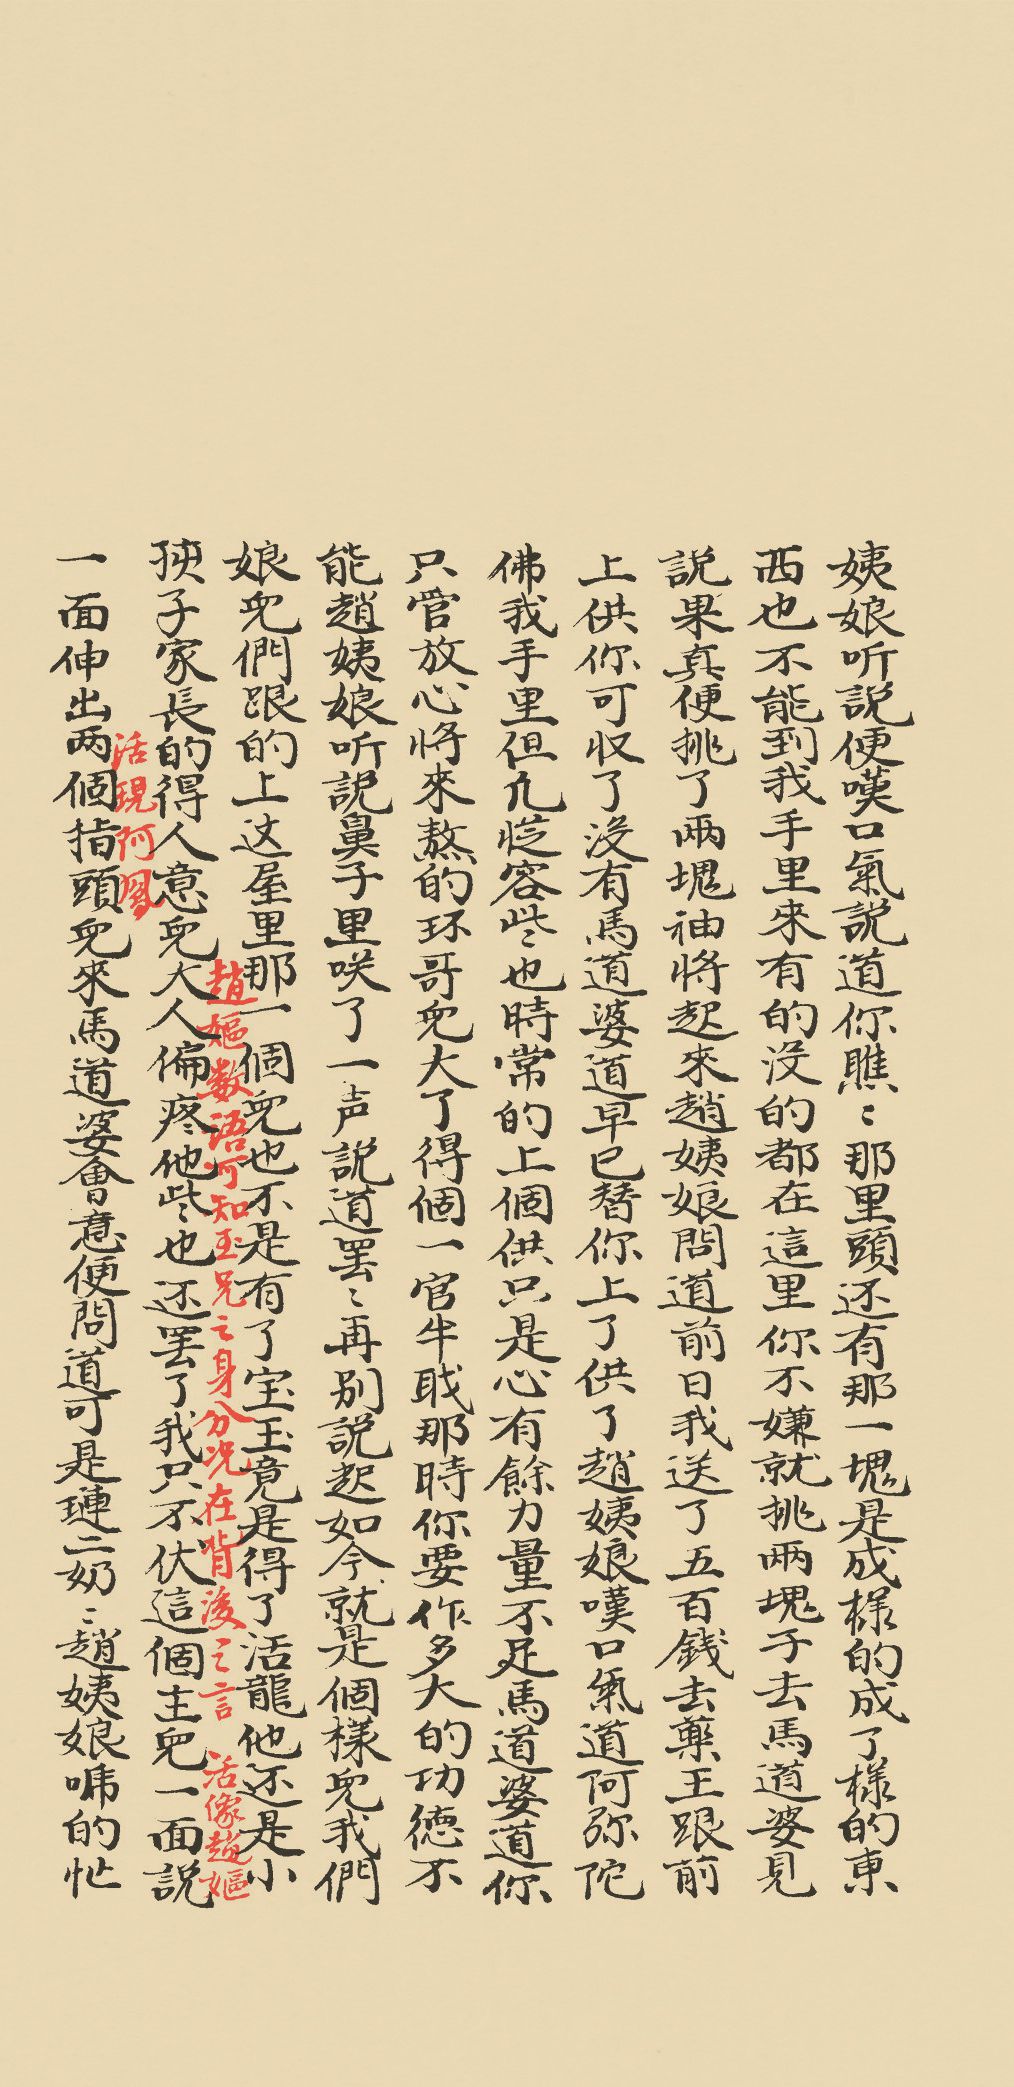 姨娘听說便嘆口氣說道你瞧〻那里頭还有那一塊是成樣的成了樣的東
西也不能到我手里來有的没的都在這里你不嫌就挑兩塊子去馬道婆見
說果真便挑了兩塊袖將起來趙姨娘問道前日我送了五百錢去藥王跟前
上供你可収了没有馬道婆道早已替你上了供了趙姨娘嘆口氣道阿弥陀
佛我手里但凢從容些〻也時常的上個供只是心有餘力量不足馬道婆道你
只管放心將來熬的环哥兒大了得個一官半职那時你要作多大的功德不
能趙姨娘听說鼻子里咲了一声說道罢〻再别說起如今就是個樣兒我們
娘兒們跟的上这屋里那一個兒也不是有了宝玉竟是得了活龍他还是小
趙嫗数语可知玉兄之身分况在背後之言 活像趙嫗
孩子家長的得人意兒大人偏疼他些也还罢了我只不伏這個主兒一面說
活現阿鳳
一面伸出两個指頭兒來馬道婆會意便問道可是璉二奶〻趙姨娘唬的忙